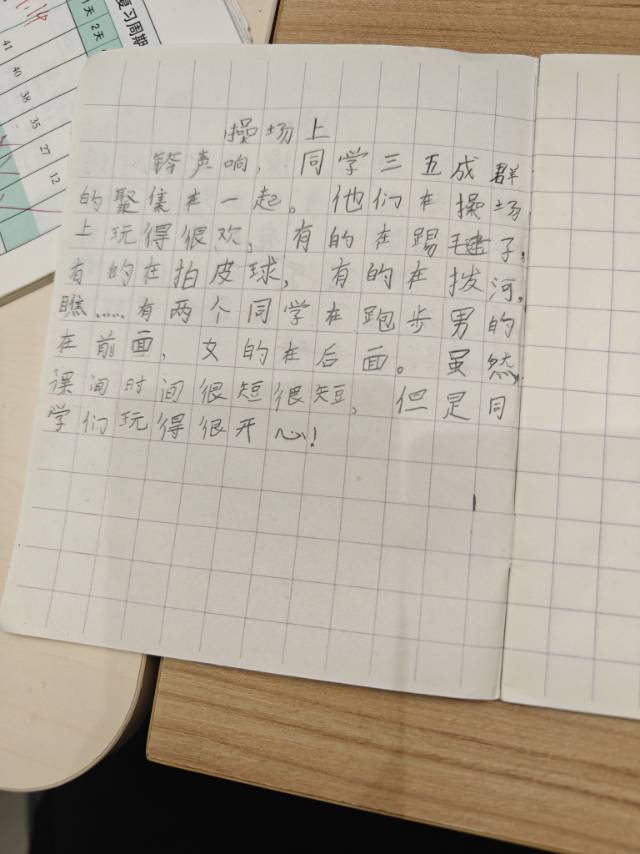 复习周期
1天
2天
41
40
38
35
27
12
操场上
铃声响，同学三五成群
的聚集在一起。他们在操场
上玩得很欢，有的在踢毽子，
有的在拍皮球，有的在拨河，
瞧……有两个同学在跑步男的
在前面，女的在后面。虽然
课间时间很短很短，但是同
学们玩得很开心！